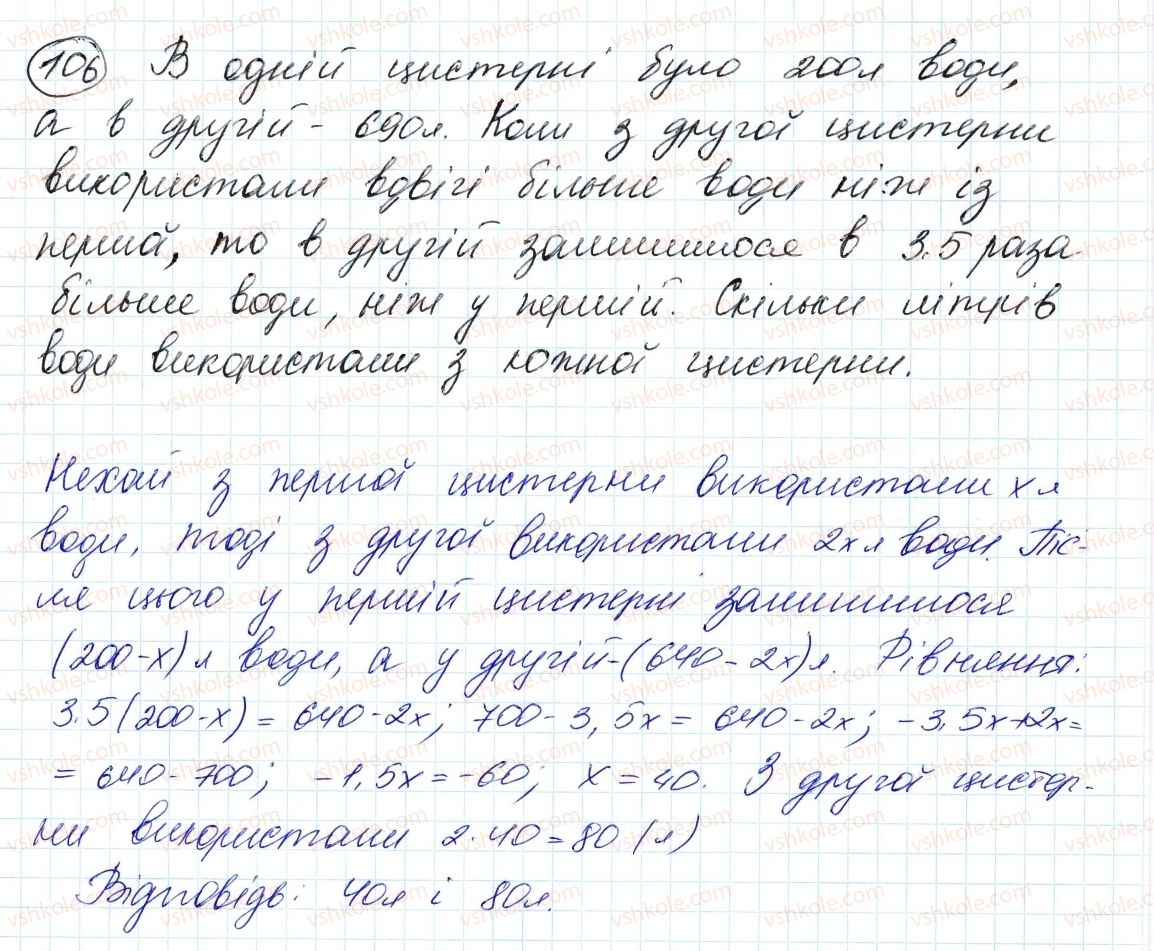 106 В одній цистерні було 200л води,
а в другій - 690л. Коли з другої цистерни
використали вдвічі більше води ніж із
першої, то в другій залишилося в 3.5 раза
більше води, ніж у першій. Скільки літрів
води використали з кожної цистерни.
Нехай з першої цистерни використали x л
води, тоді з другої використали 2x л води. Піс-
ля цього у першій цистерні залишилося
(200-x) л води, а у другій-(640-2x) л. Рівняння:
3.5(200-x) = 640-2x; 700-3,5x = 640-2x; -3,5x+2x=
= 640-700; -1,5x=-60; x=40. З другої цистер-
ни використали 2·40=80 (л)
Відповідь: 40л і 80л.